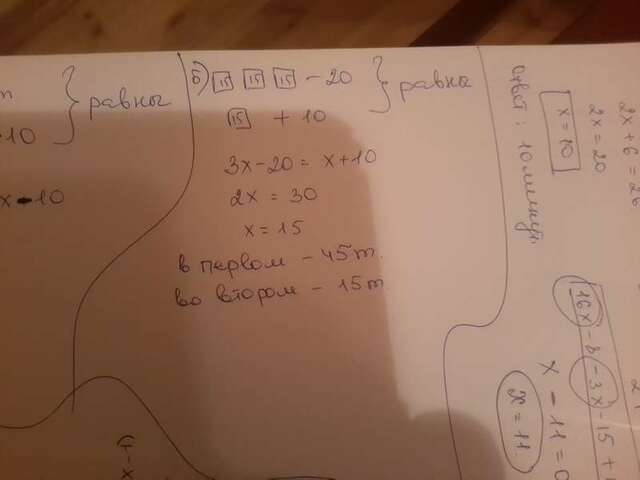 равны
10
x-10
б) 15 15 15 - 20
15 + 10
равны
3x-20 = x+10
2x = 30
x = 15
в первом - 45т.
во втором - 15т
2x + 6 = 26
2x = 20
x = 10
ответ: 10
16x - 8 - 3x - 15 +
x - 11 = 0
x = 11.